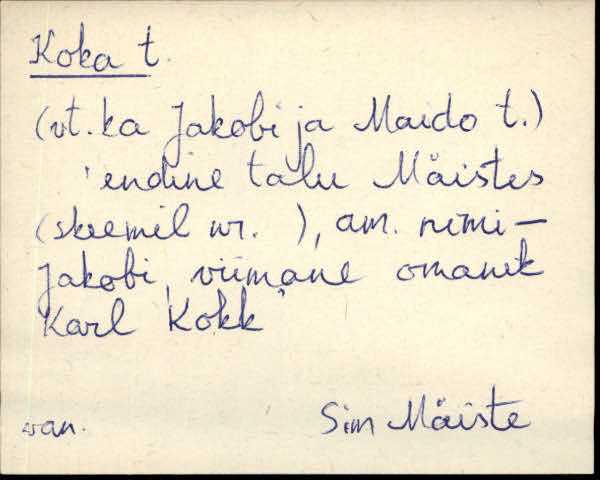 Koka t.
(vt. ka Jakobi ja Maido t.)
'endine talu Mäistes
(skeemil nr. ), am. nimi-
Jakobi, viimane omanik
Karl Kokk'
van. Sim Mäiste